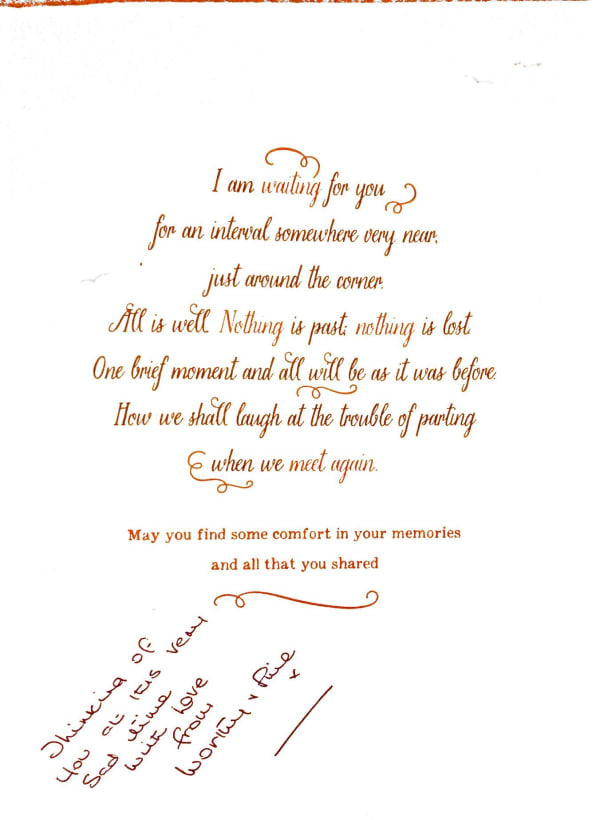 I am waiting for you
for an interval somewhere very near,
just around the corner.
All is well. Nothing is past; nothing is lost
One brief moment and all will be as it was before.
How we shall laugh at the trouble of parting
when we meet again.
May you find some comfort in your memories
and all that you shared
Thinking of
You at this very
Sad time
With Love
from